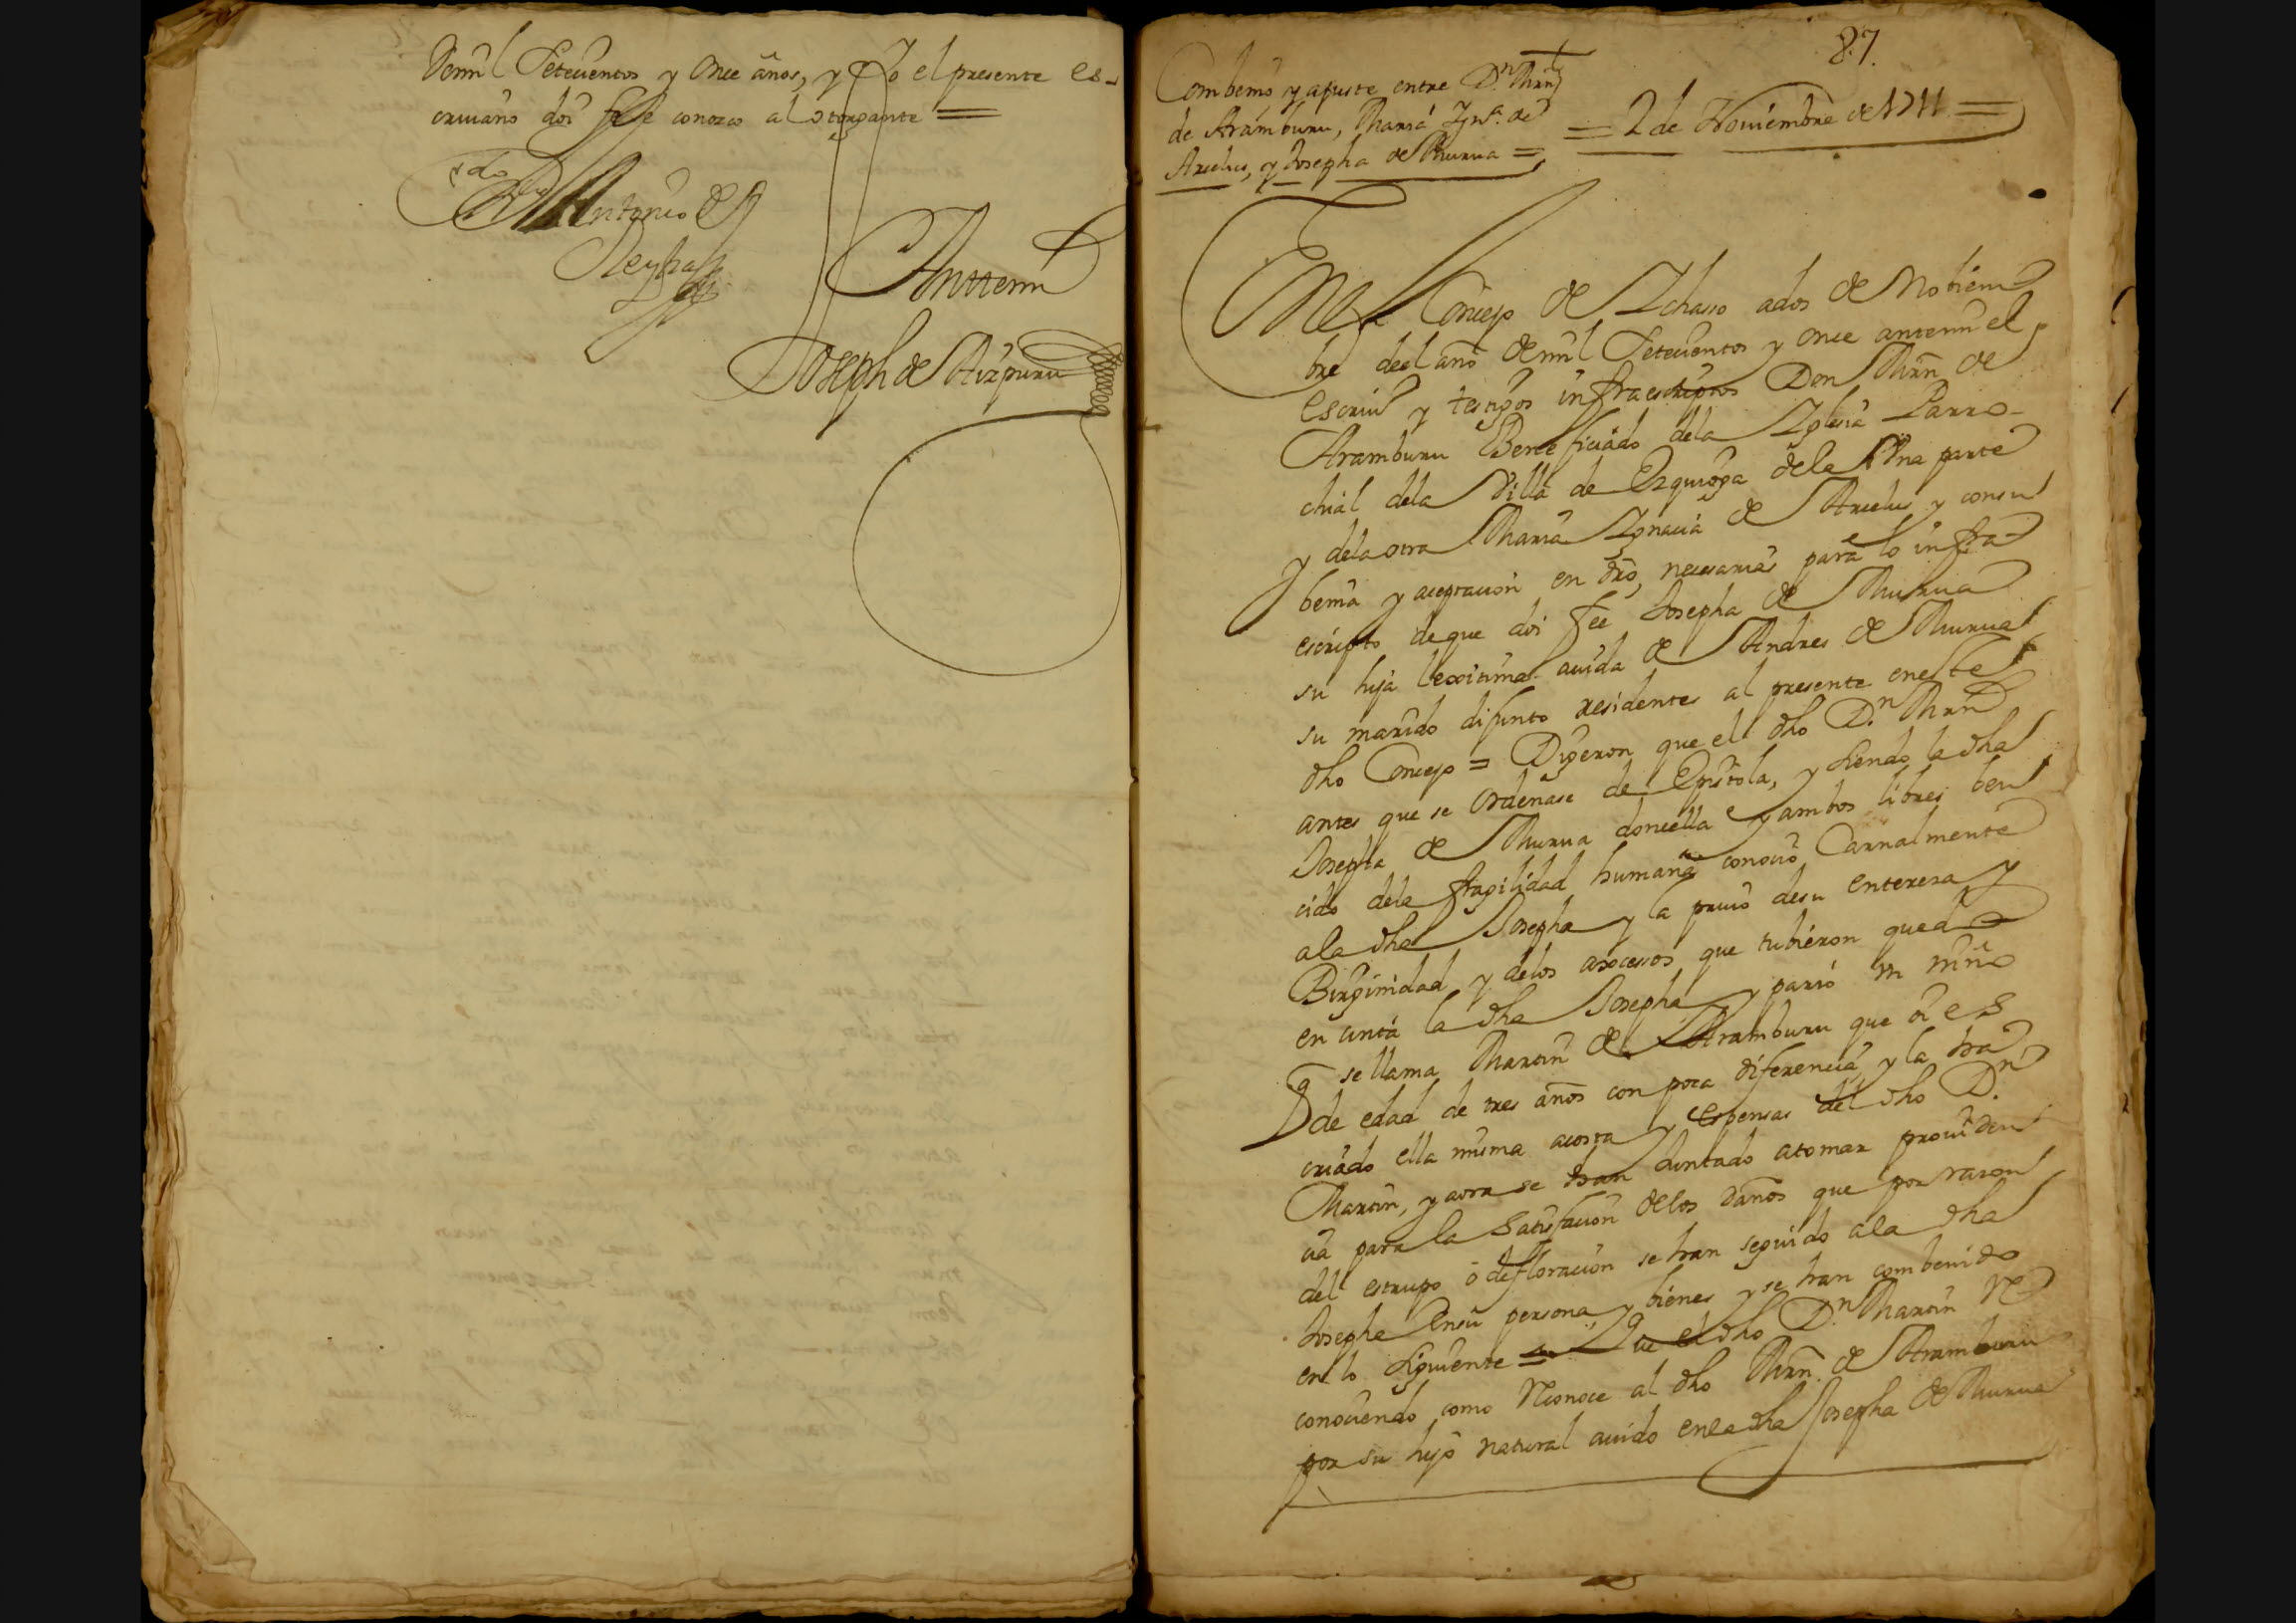 de mil Setecientos y Once años, y Yo el presente es-
criuano doi fee conozco al otorgante =
Antonio de
Anttemi
Joseph de Aizpuru
87.
Combenio y ajuste entre Dn. Mrn
de Aramburu, Maria Ygna. de
Arcelus, y Josepha de Murua =
= 2 de Nouiembre de 1711 =
En el Concejo de Ychasso a dos de Nobiem-
bre deel año de mil Setecientos y Once antemi el
escriuo y testigos infraescriptos Don Mrn de
Aramburu Beneficiado dela Yglesia Parro-
chial dela Villa de Ezquioga dela Vna parte
y dela otra Maria Ygnacia de Arcelus y con su
benia y aceptacion en dro, necesarias para lo infra-
escripto de que doi fee Josepha de Murua
su hija lexitima auida de Andres de Murua
su marido difunto residentes al presente en este
dho Concejo = Digeron que el dho Dn. Mrn
antes que se ordenase de Epistola, y siendo la dha
Josepha de Murua doncella y ambos libres ben
cido dela fragilidad humana conocio Carnalmente
ala dha Josepha y la priuo de su entereza y
Birginidad y delos accessos que tubieron quedo
en cinta la dha Josepha y pario vn niño
q se llama Martin de Aramburu que oi es
de edad de tres años con poca diferencia y la ha
criado ella misma acosta y espensas del dho Dn.
Martin, y aora se han Juntado atomar prouiden
cia para la Satisfacion delos daños que por razon
del estrupo o defloracion se han seguido ala dha
Josepha en su persona y bienes y se han combenido
en lo siguiente = Que el dho Dn. Martin Re
conociendo como Reconoce al dho Mrn. de Aramburu
por su hijo natural auido en la dha Josepha de Murua